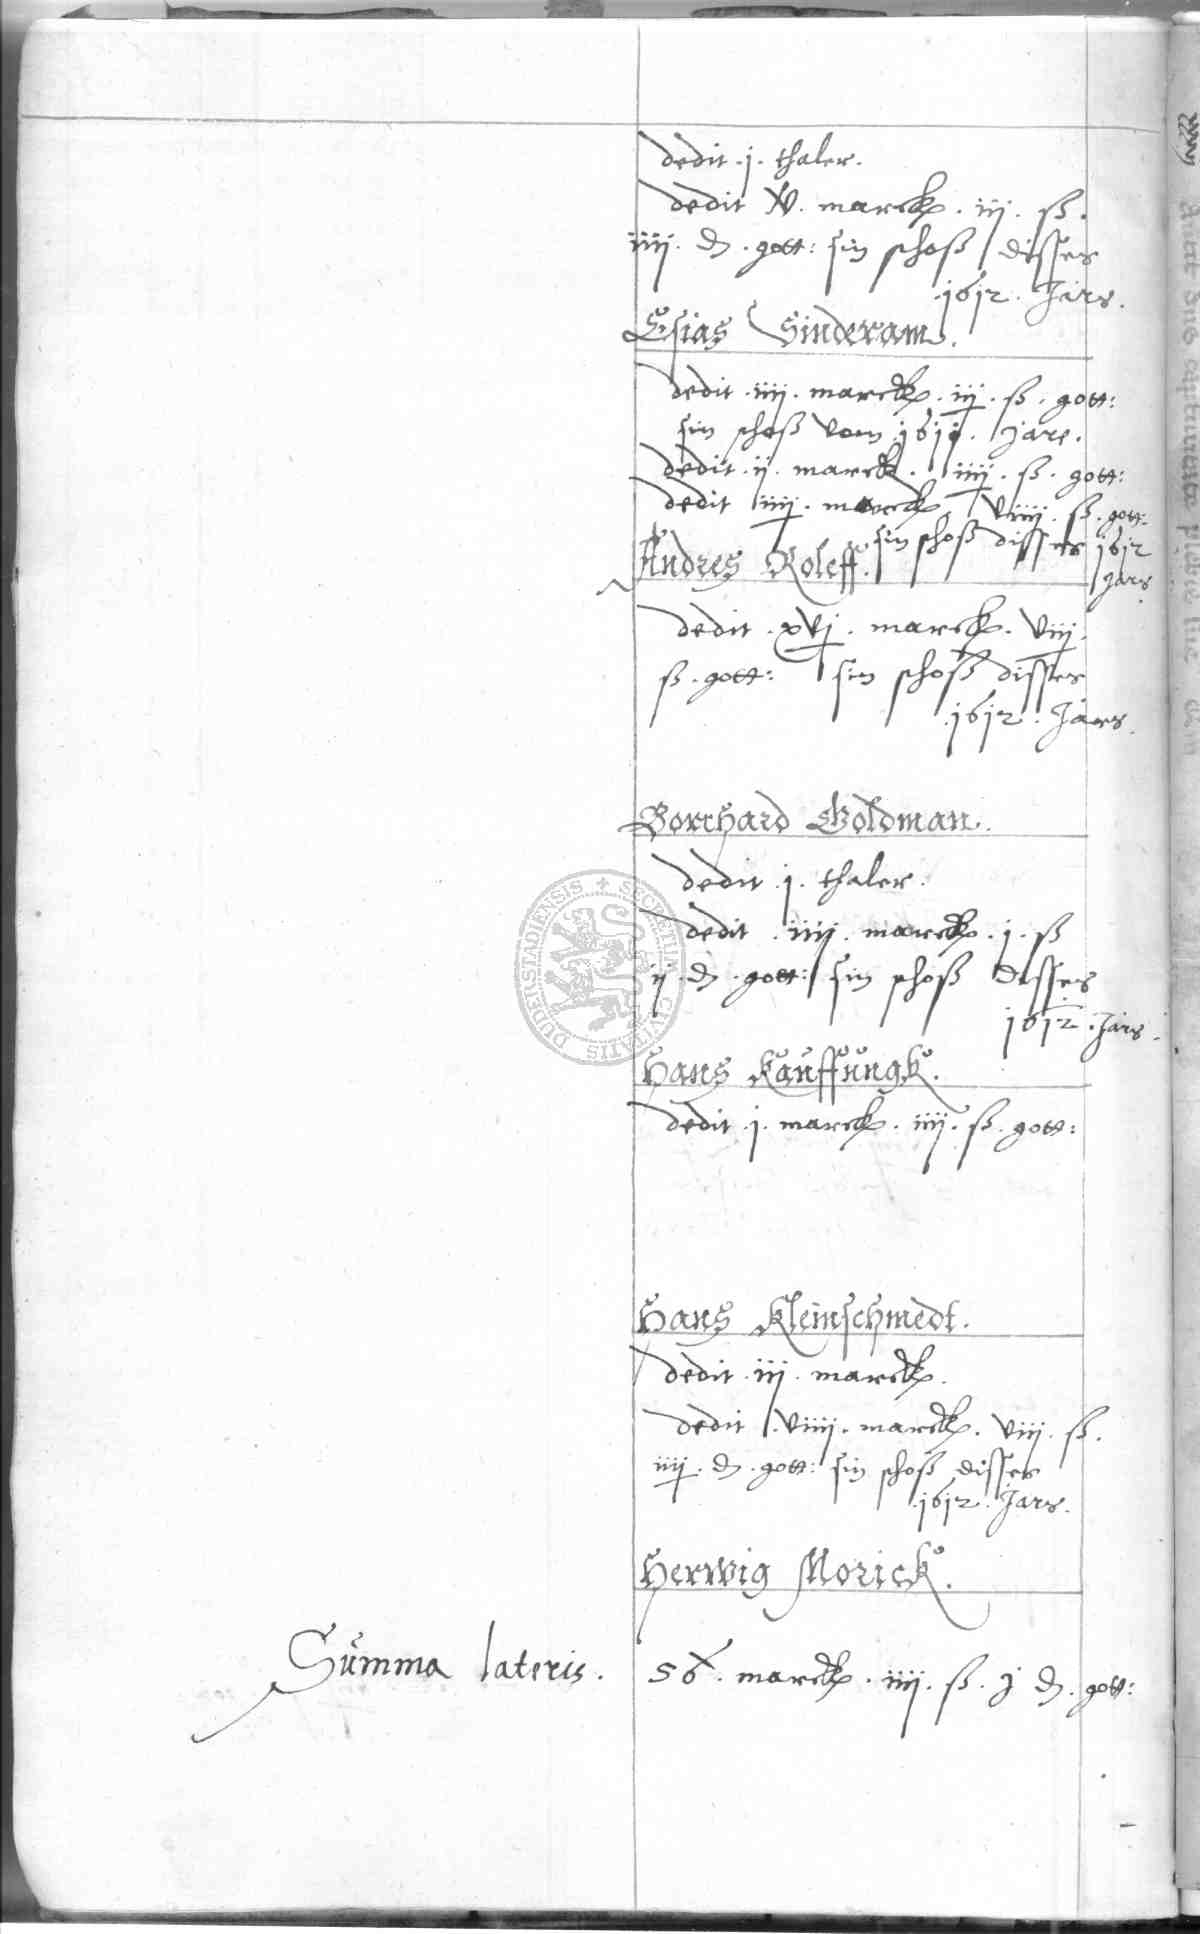 dedit . j . thaler .
dedit V . marck . iij . ß .
iiij . d . gott : sin schoß disses
1612 . Jars .
Esias Sinderam .
dedit . iiij . marck . iij . ß . gott :
sin schoß vom 1611 . Jare .
dedit . ij . marck . iiij . ß . gott :
dedit iiij . marck . viiij . ß . gott :
sin schoß disses 1612
Jars
Andres Roleff .
dedit . xvj . marck . viij .
ß . gott : sin schoß disses
1612 . Jars .
Borchard Goldman .
dedit . j . thaler .
dedit . iiij . marck . j . ß
ij . d . gott : sin schoß disses
1612 . Jars .
Hans Kauffungk .
dedit . j . marck . iiij . ß . gott :
Hans Kleinschmedt .
dedit . iij . marck .
dedit . viiij . marck . viij . ß .
iiij . d . gott : sin schoß disses
1612 . Jars .
Herwig Morick .
Summa lateris . 56 . marck . iiij . ß . j d . gott :
SECRETUM CIVITATIS DUDERSTADIENSIS